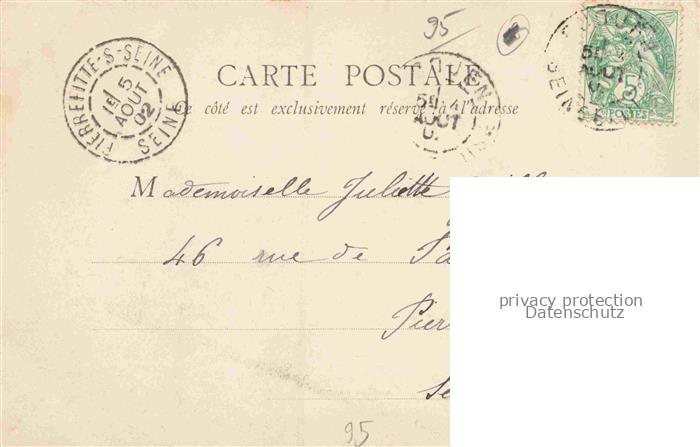 95
CARTE POSTALE
Ce côté est exclusivement réservé à l'adresse
PIERREFITTE-S-SEINE
1E 5
AOUT
02
SEINE
5E 4
AOUT
SEINE
5
POSTES
Mademoiselle Juliette
46 rue de
Pier
Se
privacy protection
Datenschutz
95